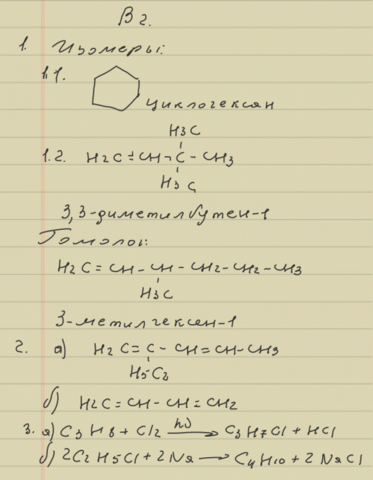 В 2.
1. Изомеры:
1.1.
циклогексан
H3C
1.2. H2C = CH - C - CH3
H3C
3,3-диметилбутен-1
Гомолог:
H2C = CH - CH - CH2 - CH2 - CH3
H3C
3-метилгексен-1
2. а) H2C = C - CH = CH - CH3
H5C2
б) H2C = CH - CH = CH2
3. а) C3H8 + Cl2 hν→ C3H7Cl + HCl
б) 2C2H5Cl + 2Na → C4H10 + 2NaCl